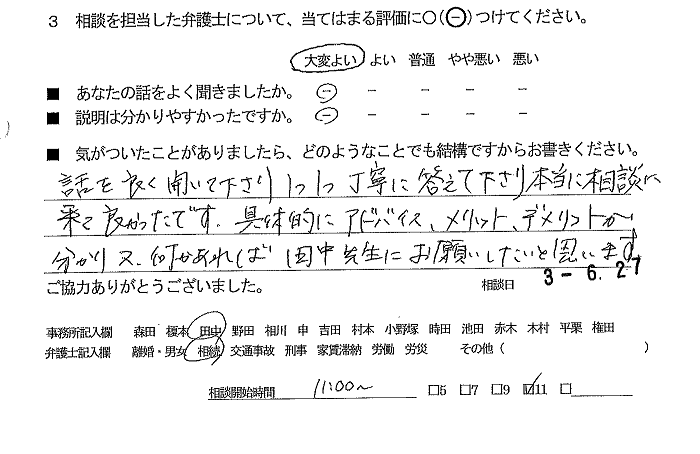 3 相談を担当した弁護士について、当てはまる評価に○(－)つけてください。
大変よい よい 普通 やや悪い 悪い
■ あなたの話をよく聞きましたか。 － － － － －
■ 説明は分かりやすかったですか。 － － － － －
■ 気がついたことがありましたら、どのようなことでも結構ですからお書きください。
話を良く聞いて下さり1つ1つ丁寧に答えて下さり本当に相談に
来て良かったです。具体的にアドバイス、メリット、デメリットが
分かり又、何かあれば田中先生にお願いしたいと思います
ご協力ありがとうございました。 相談日 3-6.27
事務所記入欄 森田 榎本 田中 野田 相川 申 吉田 村本 小野塚 時田 池田 赤木 木村 平栗 権田
弁護士記入欄 離婚・男女 相続 交通事故 刑事 家賃滞納 労働 労災 その他 ( )
相談開始時間 11:00～ □5 □7 □9 ☑11 □